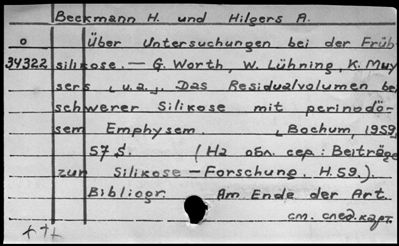 Beckmann H. und Hilgers A.
o Über Untersuchungen bei der Früh
34322 silikose. — G. Worth, W. Lühning, K. Muy
sers [u.a.]. Das Residualvolumen be
schwerer Silikose mit perinodö-
sem Emphysem. [Bochum, 1959]
57 S. (На обл. сер.: Beiträge
zur Silikose - Forschung. H. 59.).
Bibliogr. Am Ende der Art.
см. след. карт.